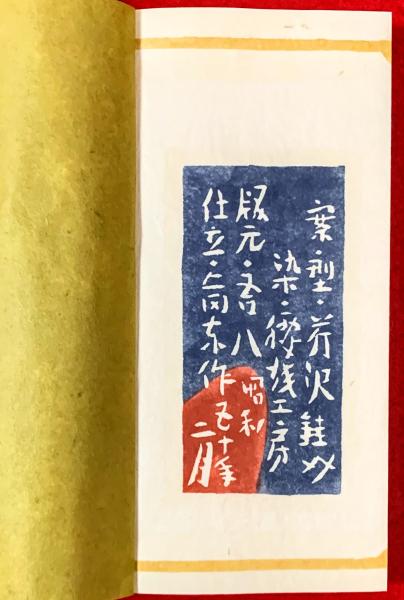 案・型・芹沢銈介
染・工房
版元・吾八
仕立・作
昭和
五十年
二月